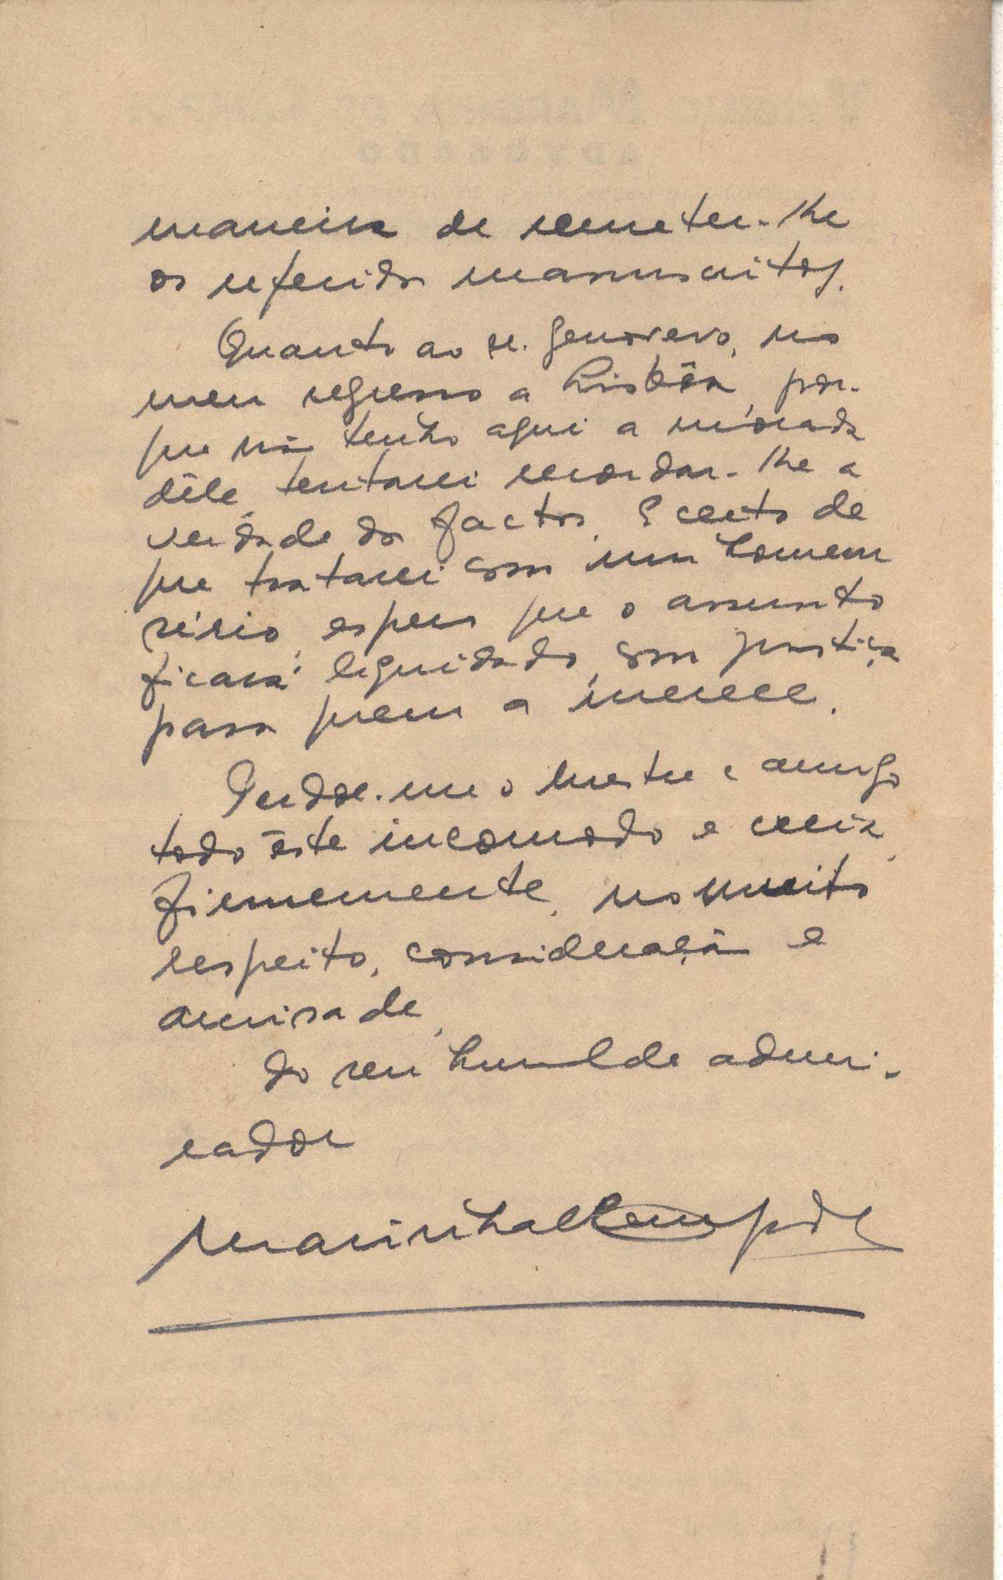 maneira de remeter-lhe
os referidos manuscritos.
Quanto ao sr. Genoveva, no
meu regresso a Lisbôa, por-
que não tenho aqui a morada
dêle, tentarei recordar-lhe a
verdade dos factos. E certo de
que tratarei com um homem
sério, espero que o assunto
ficará liquidado, com justiça
para quem a merece.
Perdoe-me o Mestre e amigo
todo êste incomodo e creia,
firmemente, no muito
respeito, consideração e
amisade,
do seu humilde admi-
rador
Marinha de Campos
ADVOGADO